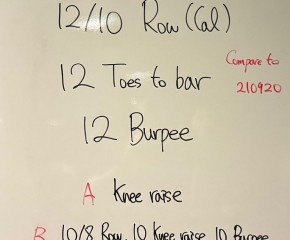 12/10 Row (Cal)
Compare to
210920
12 Toes to bar
12 Burpee
A Knee raise
B 10/8 Row, 10 Knee raise, 10 Burpee